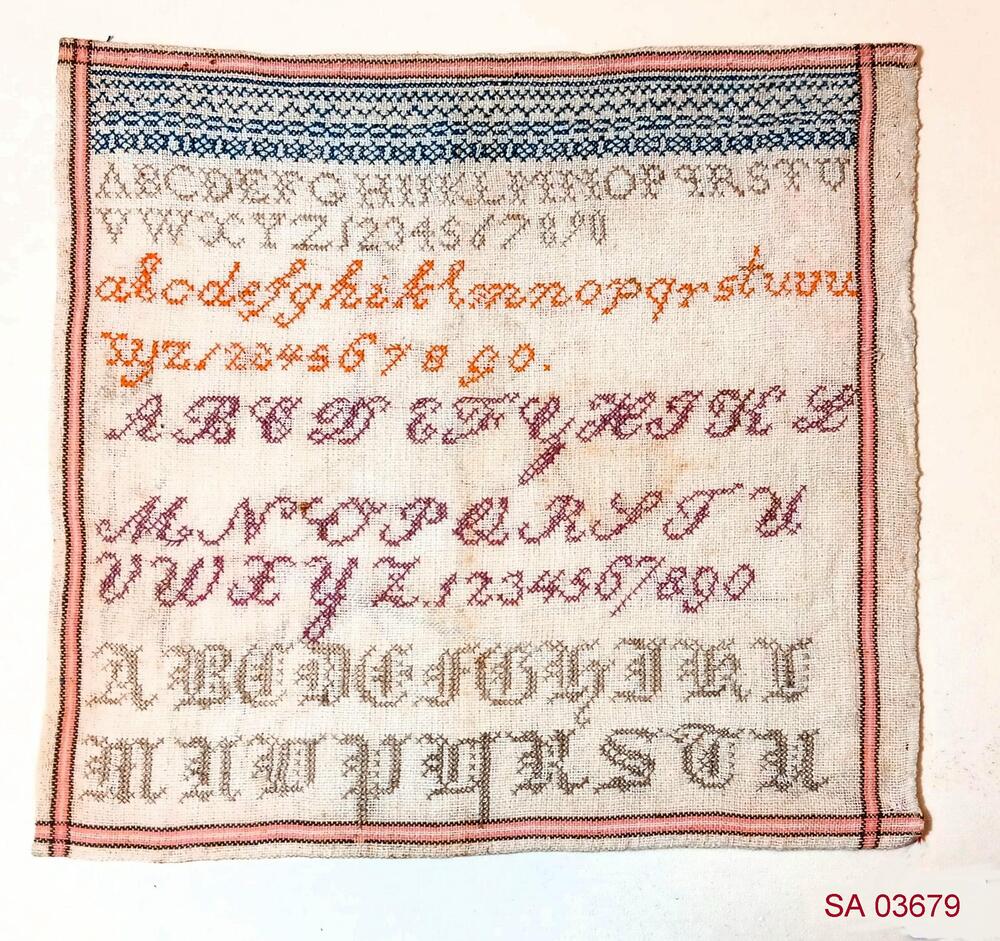 ABCDEFGHIJKLMNOPQRSTU
VWXYZ1234567890
abcdefghiklmnopqrstuvw
xyz1234567890.
ABCDEFGHIJKL
MNOPQRSTU
VWXYZ.1234567890
ABCDEFGHIKL
MNOPQRSTU
SA 03679